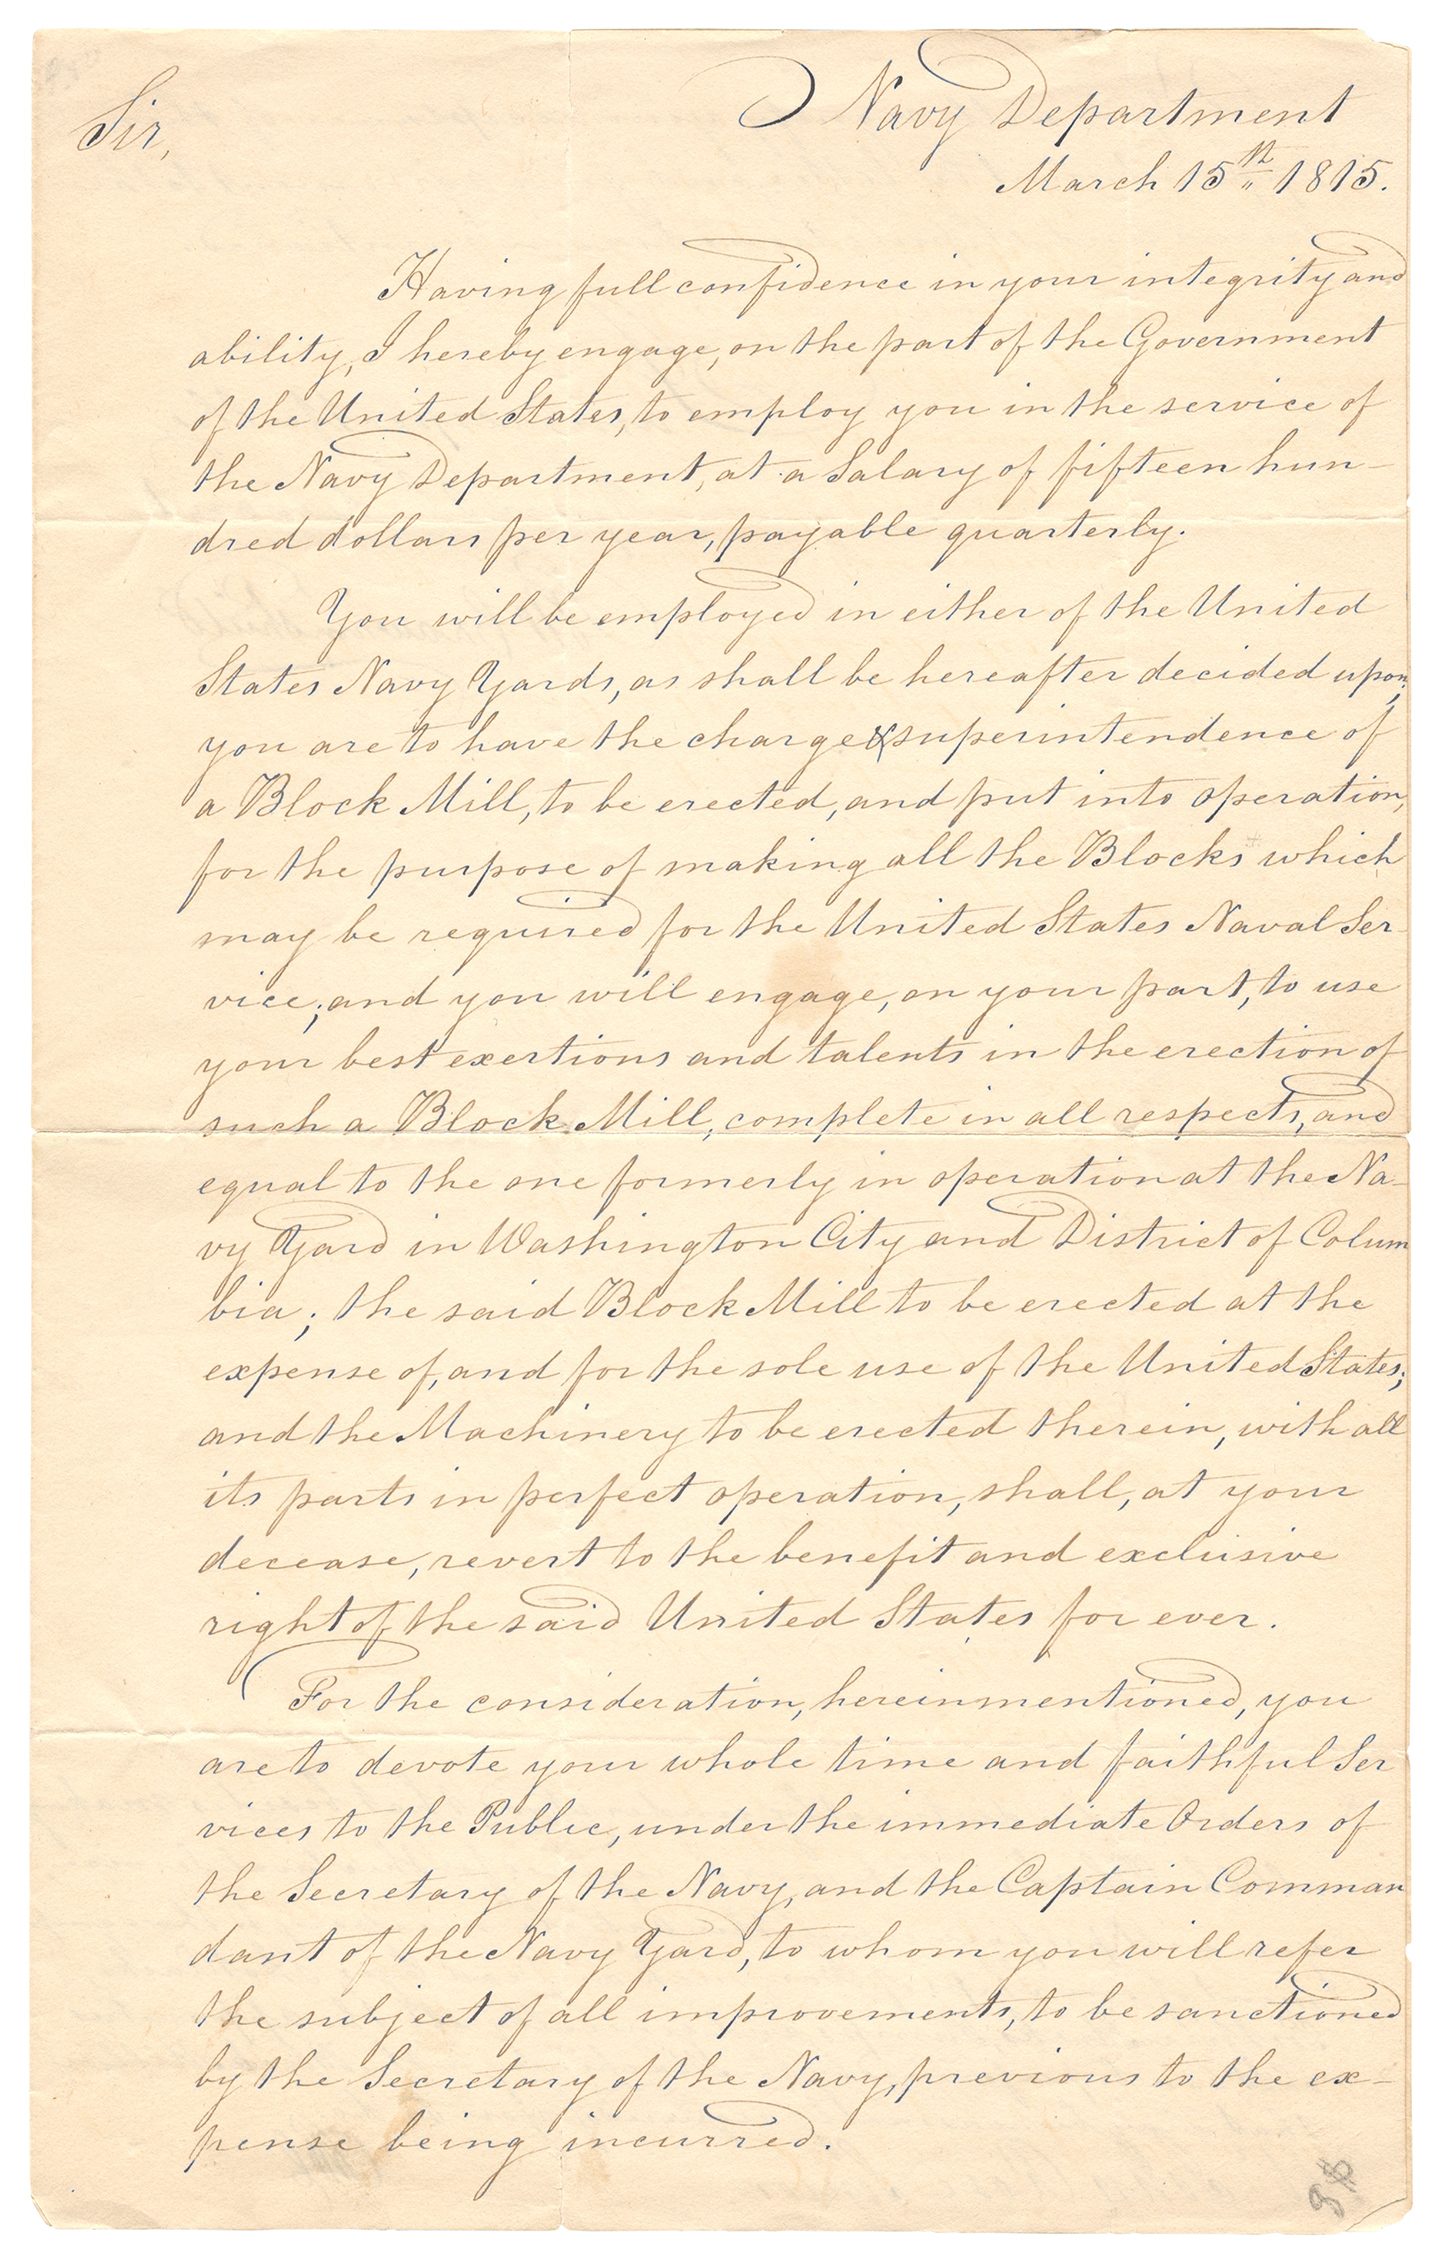 Navy Department
Sir,
March 15th 1815.
Having full confidence in your integrity and
ability, I hereby engage, on the part of the Government
of the United States, to employ you in the service of
the Navy Department, at a Salary of fifteen hun-
dred dollars per year, payable quarterly.
You will be employed in either of the United
States Navy Yards, as shall be hereafter decided upon;
you are to have the charge & superintendence of
a Block Mill, to be erected, and put into operation,
for the purpose of making all the Blocks which
may be required for the United States Naval Ser-
vice; and you will engage, on your part, to use
your best exertions and talents in the erection of
such a Block Mill, complete in all respects, and
equal to the one formerly in operation at the Na-
vy Yard in Washington City and District of Colum
bia; the said Block Mill to be erected at the
expense of, and for the sole use of the United States;
and the Machinery to be erected therein, with all
its parts in perfect operation, shall, at your
decease, revert to the benefit and exclusive
right of the said United States for ever.
For the consideration, herein mentioned, you
are to devote your whole time and faithful Ser
vices to the Public, under the immediate Orders of
the Secretary of the Navy, and the Captain Comman
dant of the Navy Yard, to whom you will refer
the subject of all improvements, to be sanctioned
by the Secretary of the Navy, previous to the ex-
pense being incurred.